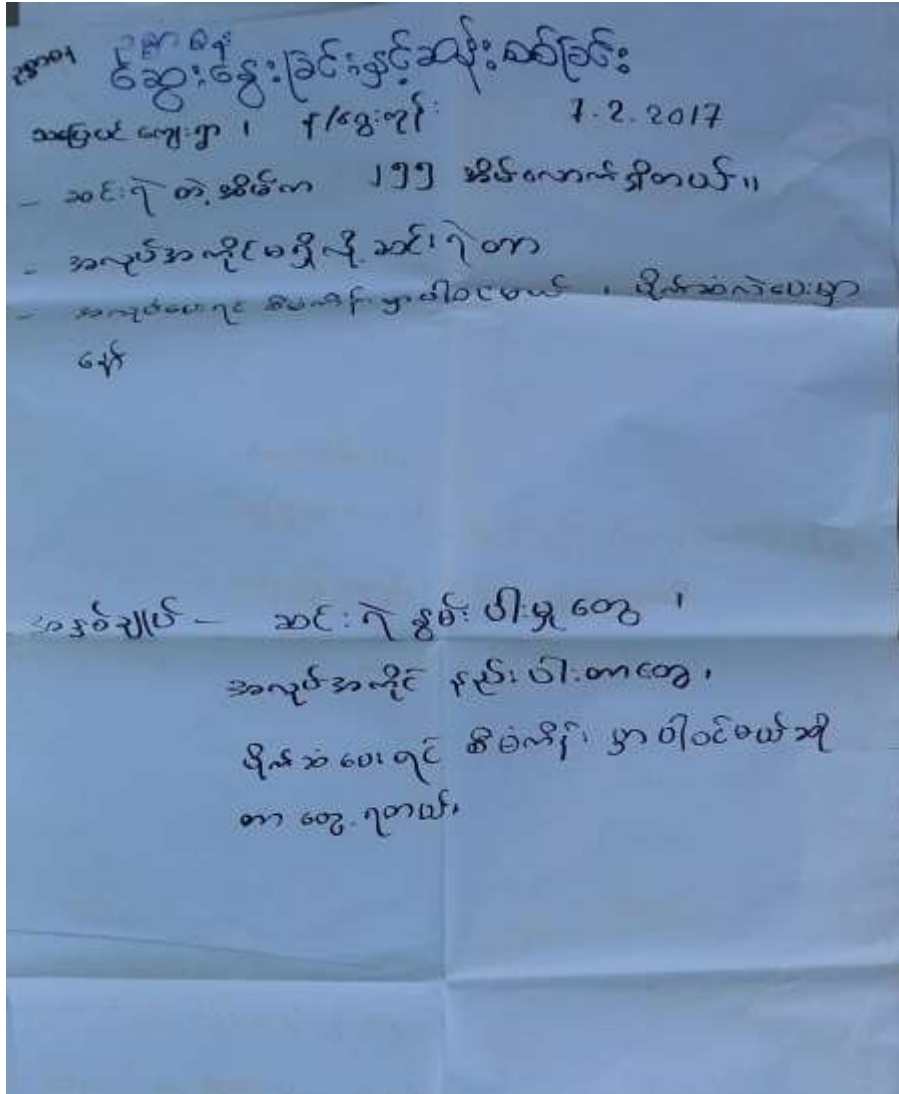 ဆွေးနွေးခြင်းနှင့်ဆန်းစစ်ခြင်း
ကျေးရွာ ၊ 7.2.2017
- ဆင်းရဲတဲ့အိမ်က ၂၅၅ အိမ်လောက်ရှိတယ်။
- အလုပ်အကိုင်မရှိလို့ ဆင်းရဲတာ
- အလုပ်ပေးရင် စီမံကိန်းမှာပါဝင်မယ် ၊ ပိုက်ဆံလဲပေးမှာ
နော်
အနှစ်ချုပ် - ဆင်းရဲနွမ်းပါးမှုတွေ ၊
အလုပ်အကိုင် နည်းပါးတာတွေ ၊
ပိုက်ဆံပေးရင် စီမံကိန်းမှာပါဝင်မယ်ဆို
တာ တွေ့ရတယ်၊